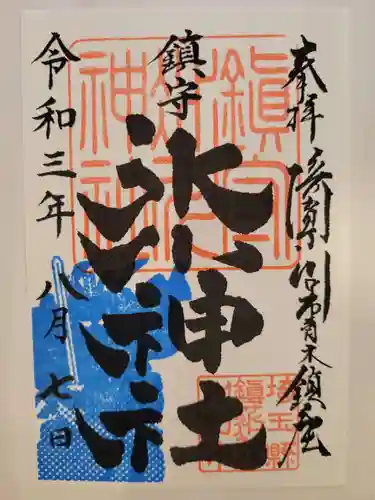 奉拝 埼玉縣川口市青木鎮座
鎮守
氷川神社
令和三年 八月 七日
鎮守氷川神社
埼玉縣